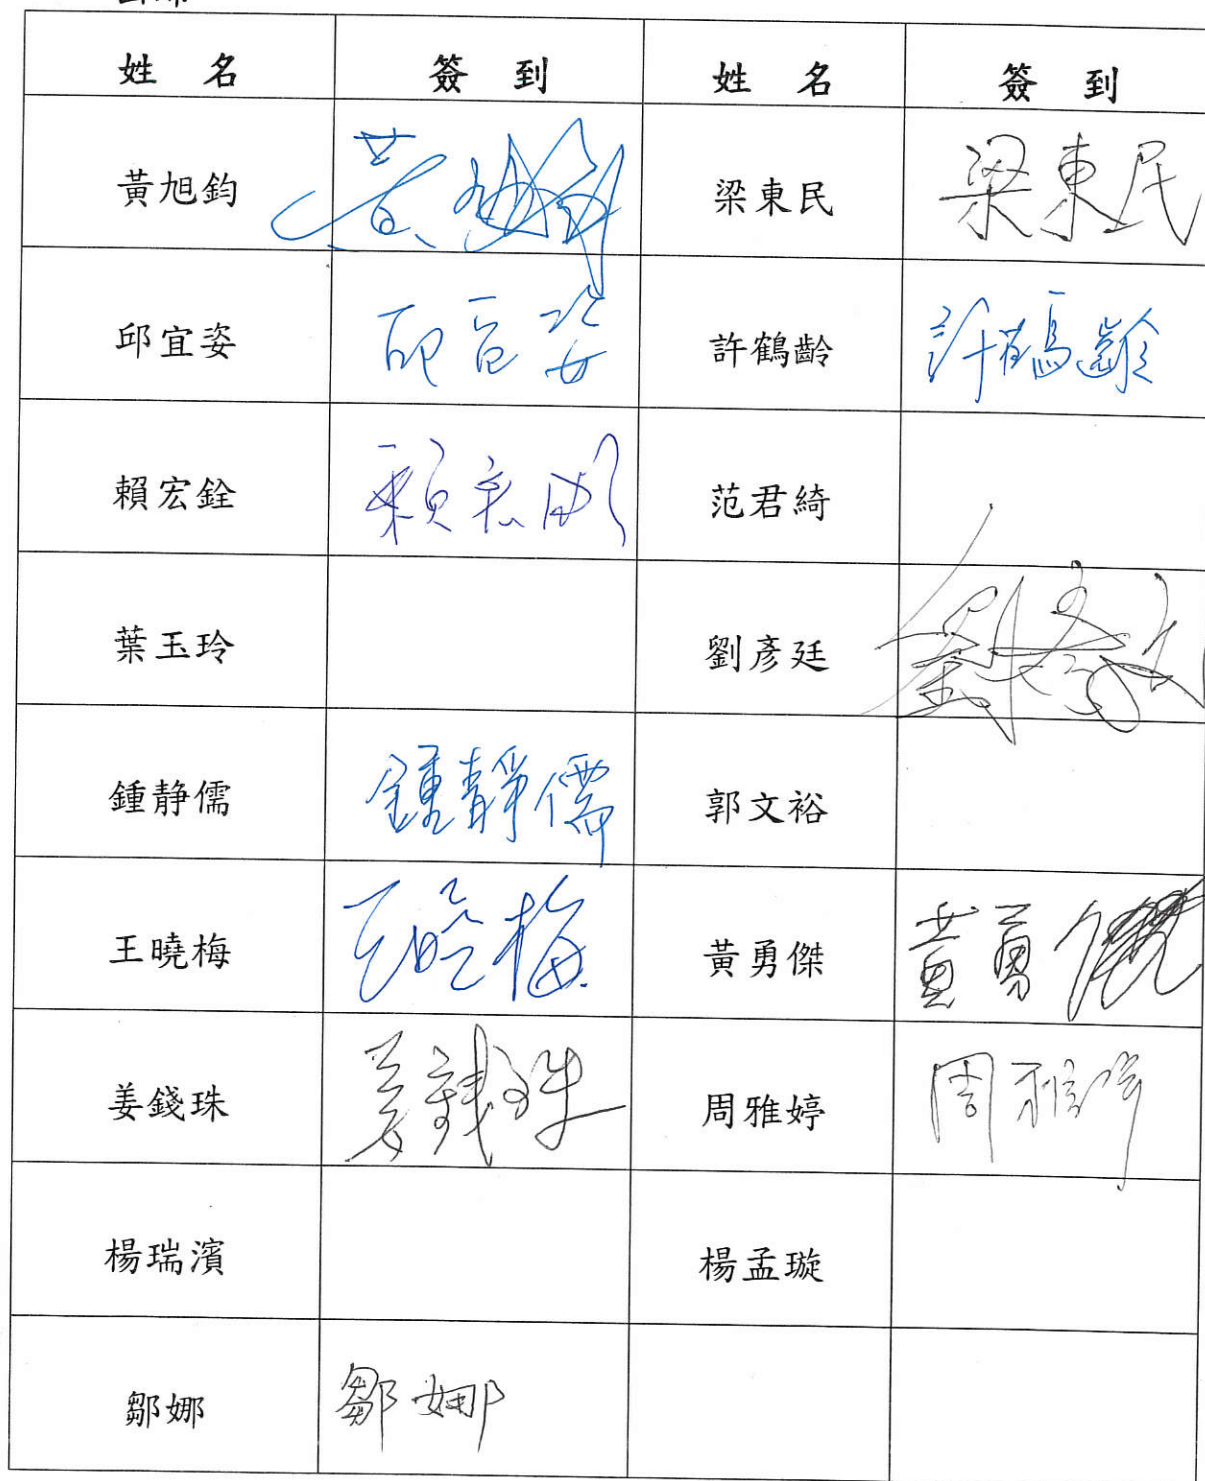 姓 名 簽 到 姓 名 簽 到
黃旭鈞 黃旭鈞 梁東民 梁東民
邱宜姿 邱宜姿 許鶴齡 許鶴齡
賴宏銓 賴宏 范君綺
葉玉玲 劉彥廷 劉彥廷
鍾静儒 鍾靜儒 郭文裕
王曉梅 王曉梅 黃勇傑 黃勇傑
姜錢珠 姜錢珠 周雅婷 周雅婷
楊瑞濱 楊孟璇
鄒娜 鄒娜